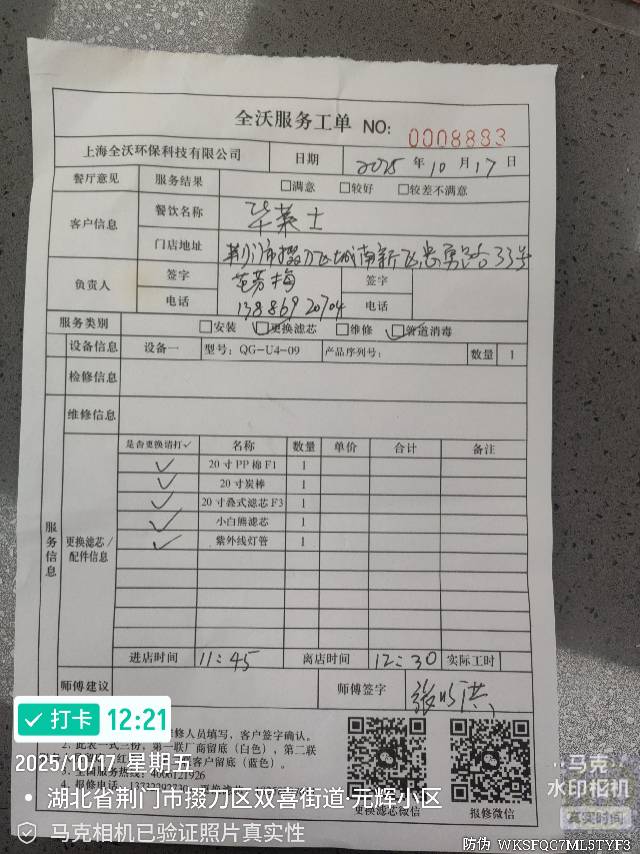 全沃服务工单 NO: 0008883
上海全沃环保科技有限公司 日期 2025 年 10 月 17 日
餐厅意见 服务结果 □满意 □较好 □较差不满意
客户信息 餐饮名称 华莱士
门店地址 荆门市掇刀区城南新区忠勇路33号
负责人 签字 范芳梅 签字
电话 13886920704 电话
服务类别 □安装 ☑更换滤芯 □维修 ☑管道消毒
设备信息 设备一 型号: QG-U4-09 产品序列号: 数量 1
检修信息
维修信息
服务信息
更换滤芯/配件信息
是否更换请打✓ 名称 数量 单价 合计 备注
✓ 20寸PP棉F1 1
✓ 20寸炭棒 1
✓ 20寸叠式滤芯F3 1
✓ 小白熊滤芯 1
✓ 紫外线灯管 1
进店时间 11:45 离店时间 12:30 实际工时
师傅建议 师傅签字
修人员填写，客户签字确认。
2. 此表一式三份，第一联厂商留底（白色），第二联
客户留底（蓝色）。
3. 全国服务热线: 4006121926
4. 报修电话:
更换滤芯微信 报修微信
打卡 12:21
2025/10/17 星期五
湖北省荆门市掇刀区双喜街道·元辉小区
马克相机已验证照片真实性
马克
水印相机
真实时间
防伪 WKSFQC7ML5TYF3